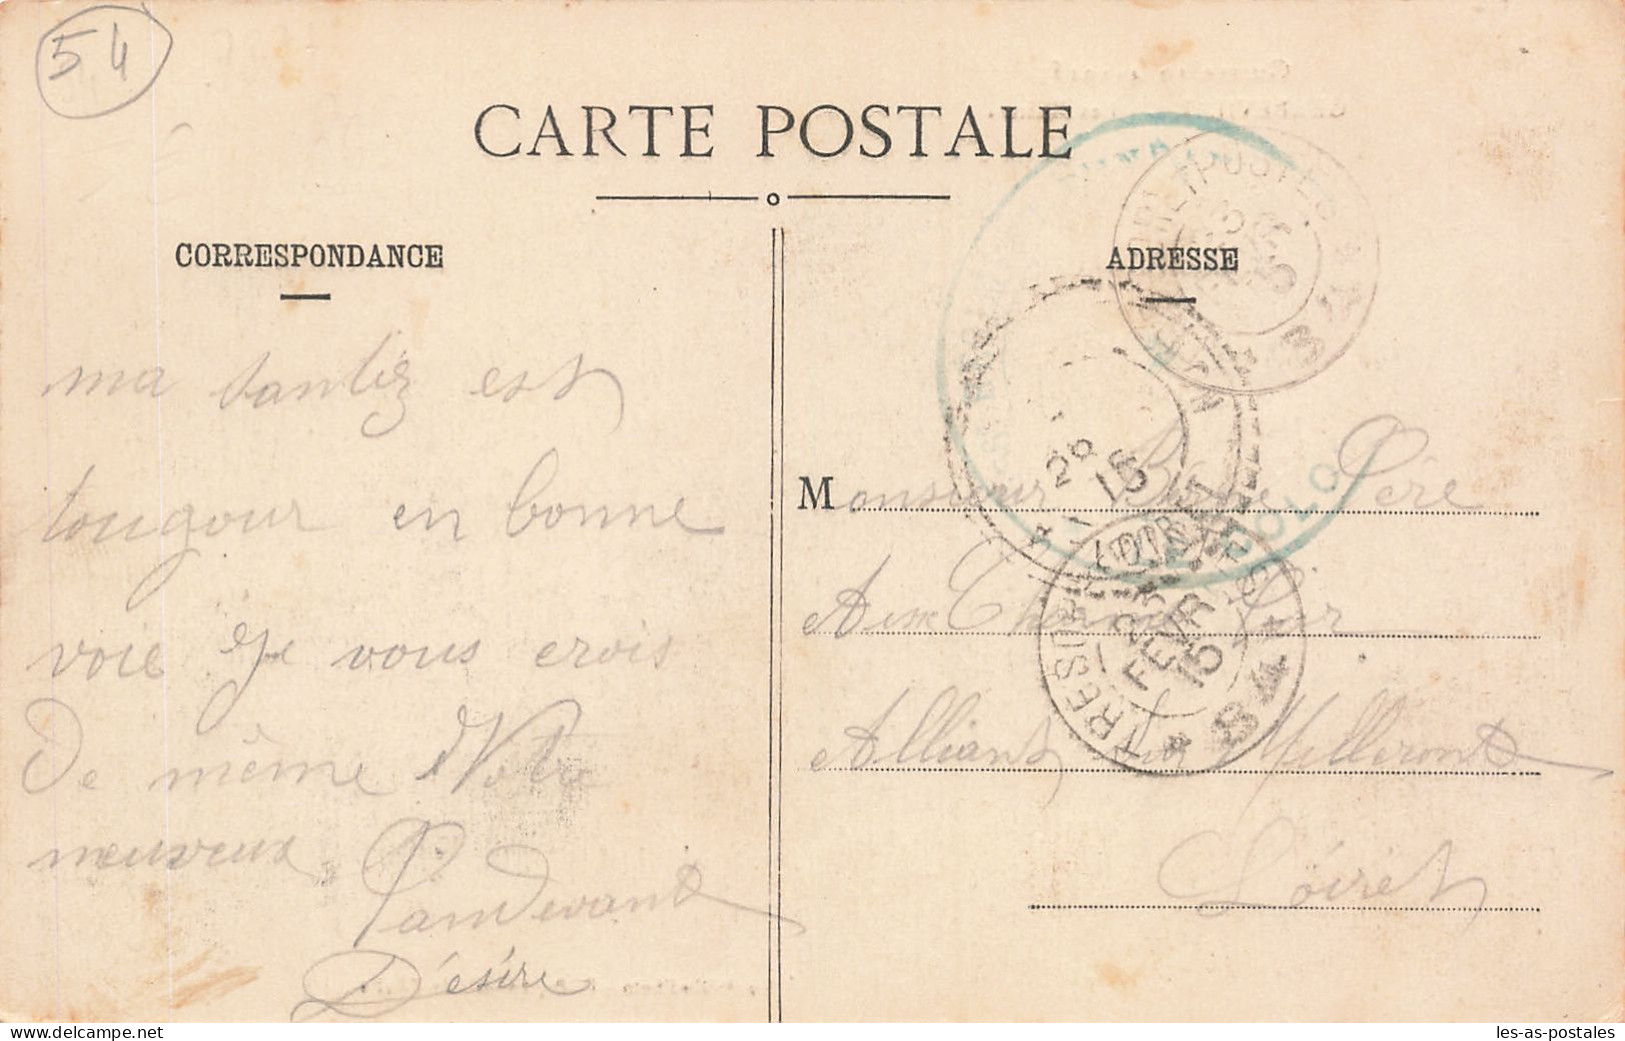 54
CARTE POSTALE
CORRESPONDANCE
ma santéz est
tougour en bonne
voie Je vous crois
De même Votre
neuveux
Pandevant
Désiré
ADRESSE
Monsieur Père
Aux
Alliant sur Milleront
Loiret
TRESOR ET POSTES
25
FEVR
15
* 84 *
28
15
delcampe.net
les-as-postales